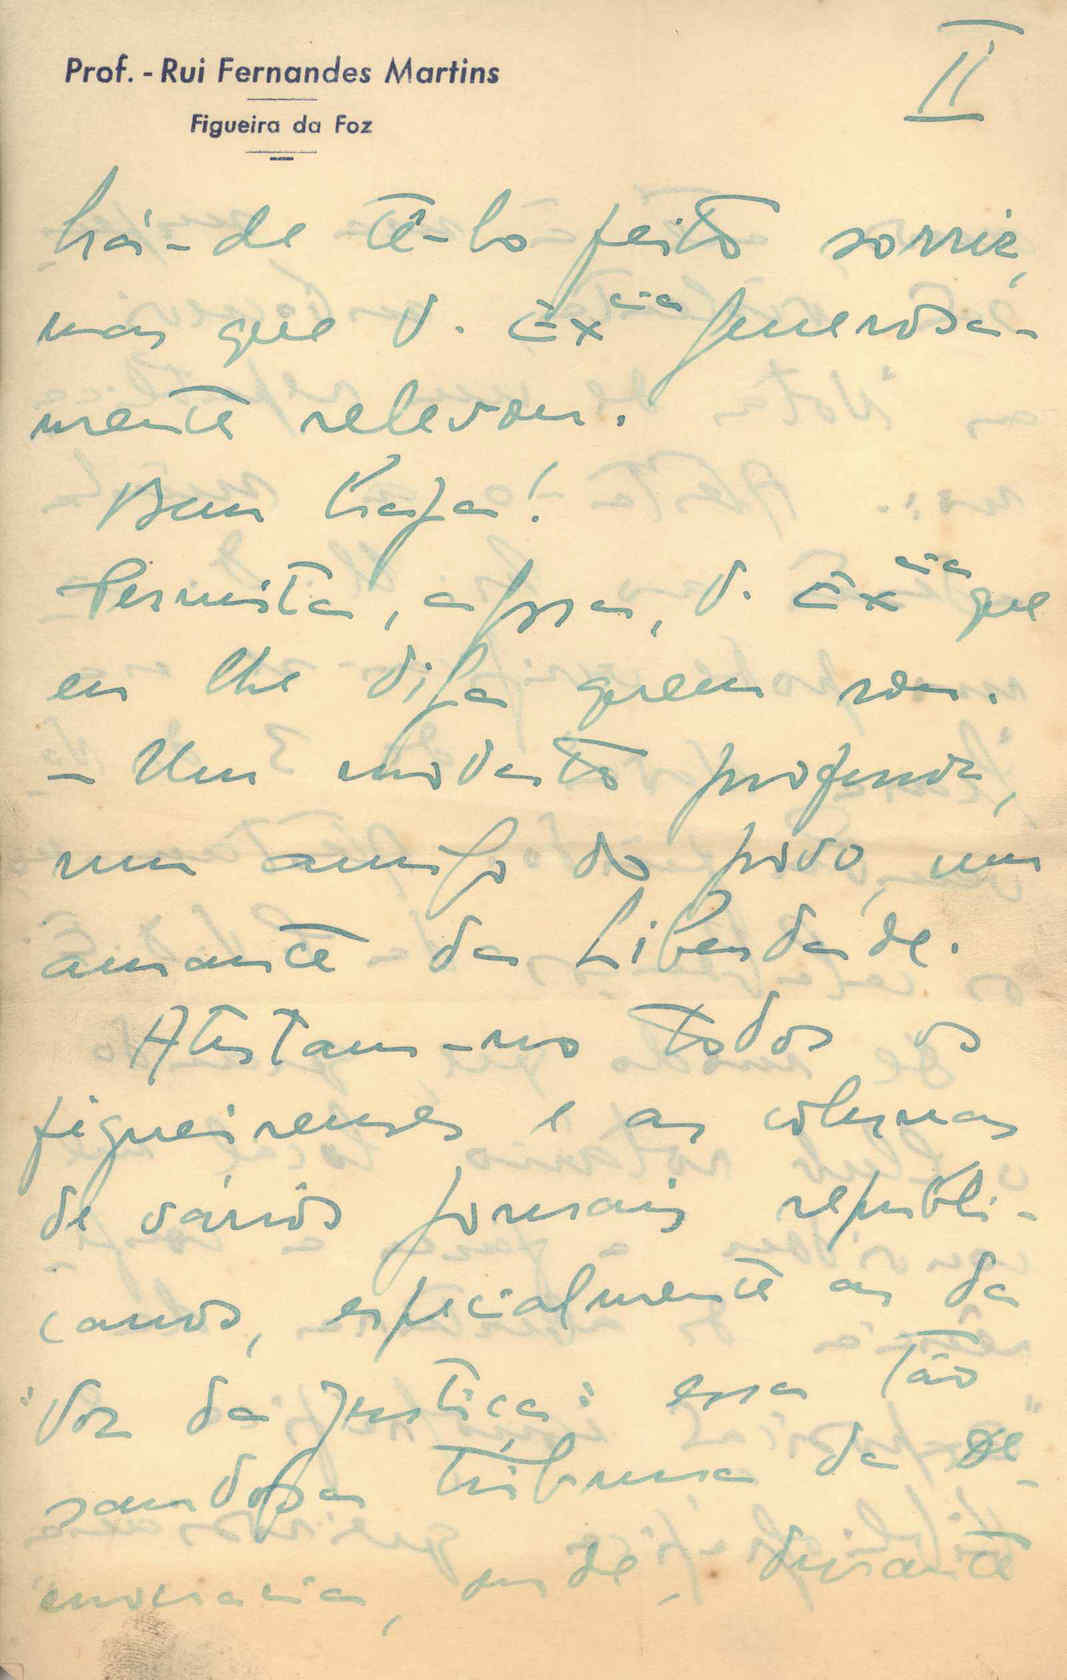 Prof. - Rui Fernandes Martins
Figueira da Foz
II
há-de tê-lo feito sorrir,
mas que V. Excia generosa-
mente relevou.
Bem haja!
Permita, agora, V. Excia que
eu lhe diga quem sou.
- Um modesto professor,
um amigo do povo, um
amante da Liberdade.
Atestam-no todos os
figueirenses e as colunas
de vários jornais republi-
canos, especialmente as da
"Voz da Justiça": essa tão
saudosa tribuna da De-
mocracia, onde, durante